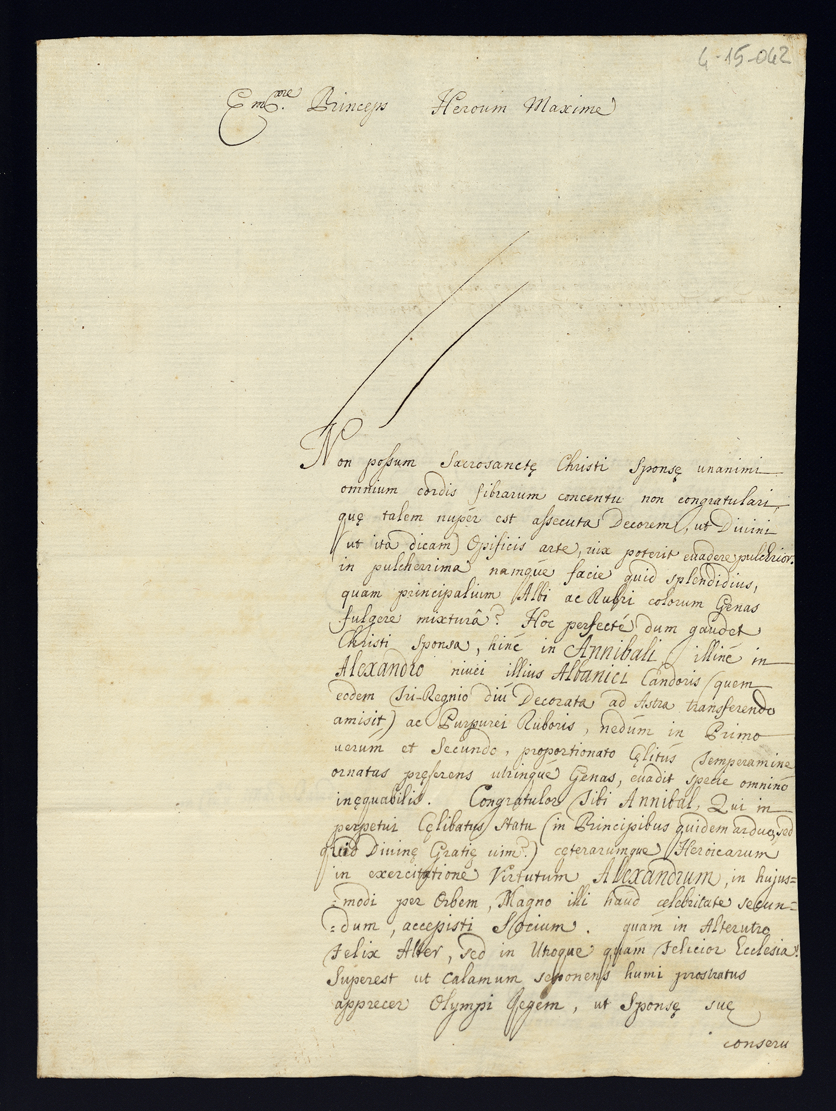 4-15-042
Em͠e. Princeps Heroum Maxime
Non possum Sacrosanctę Christi Sponsę unanimi
omnium cordis fibrarum concentu non congratulari,
quę talem nupér est assecuta Decorem, ut Divini
(ut ita dicam) Opificis arte, vix poterit evadere pulchrior.
in pulcherrima namque facie quid splendidius,
quam principalium Albi ac Rubri colorum Genas
fulgere mixturâ? Hoc perfecté dum gaudet
Christi Sponsa, hinc in Annibali illinc in
Alexandro nivei illius Albanici Candoris (quem
eodem Tri-Regnio diú Decorata ad Astra transferendo
amisit) ac Purpurei Ruboris, nedúm in Primo
verúm et Secundo, proportionato Cęlitús Temperamine
ornatas pręferens utrinque Genas, evadit specie omninó
inęquabilis. Congratulor Tibi Annibal, Qui in
perpetui Cęlibatus Statu (in Principibus quidem arduo, sed
quid Divinę Gratię vim?) cęterarumque Heroicarum
in exercitatione Virtutum Alexandrum, in hujus=
=modi per Orbem, Magno illi haud celebritate secun=
=dum, accepisti Socium. quám in Alterutro
Felix Alter, sed in Utroque quam Felicior Ecclesia!
Superest ut calamum seponens humi prostratus
apprecer Olympi Regem, ut Sponsę suę
conserv